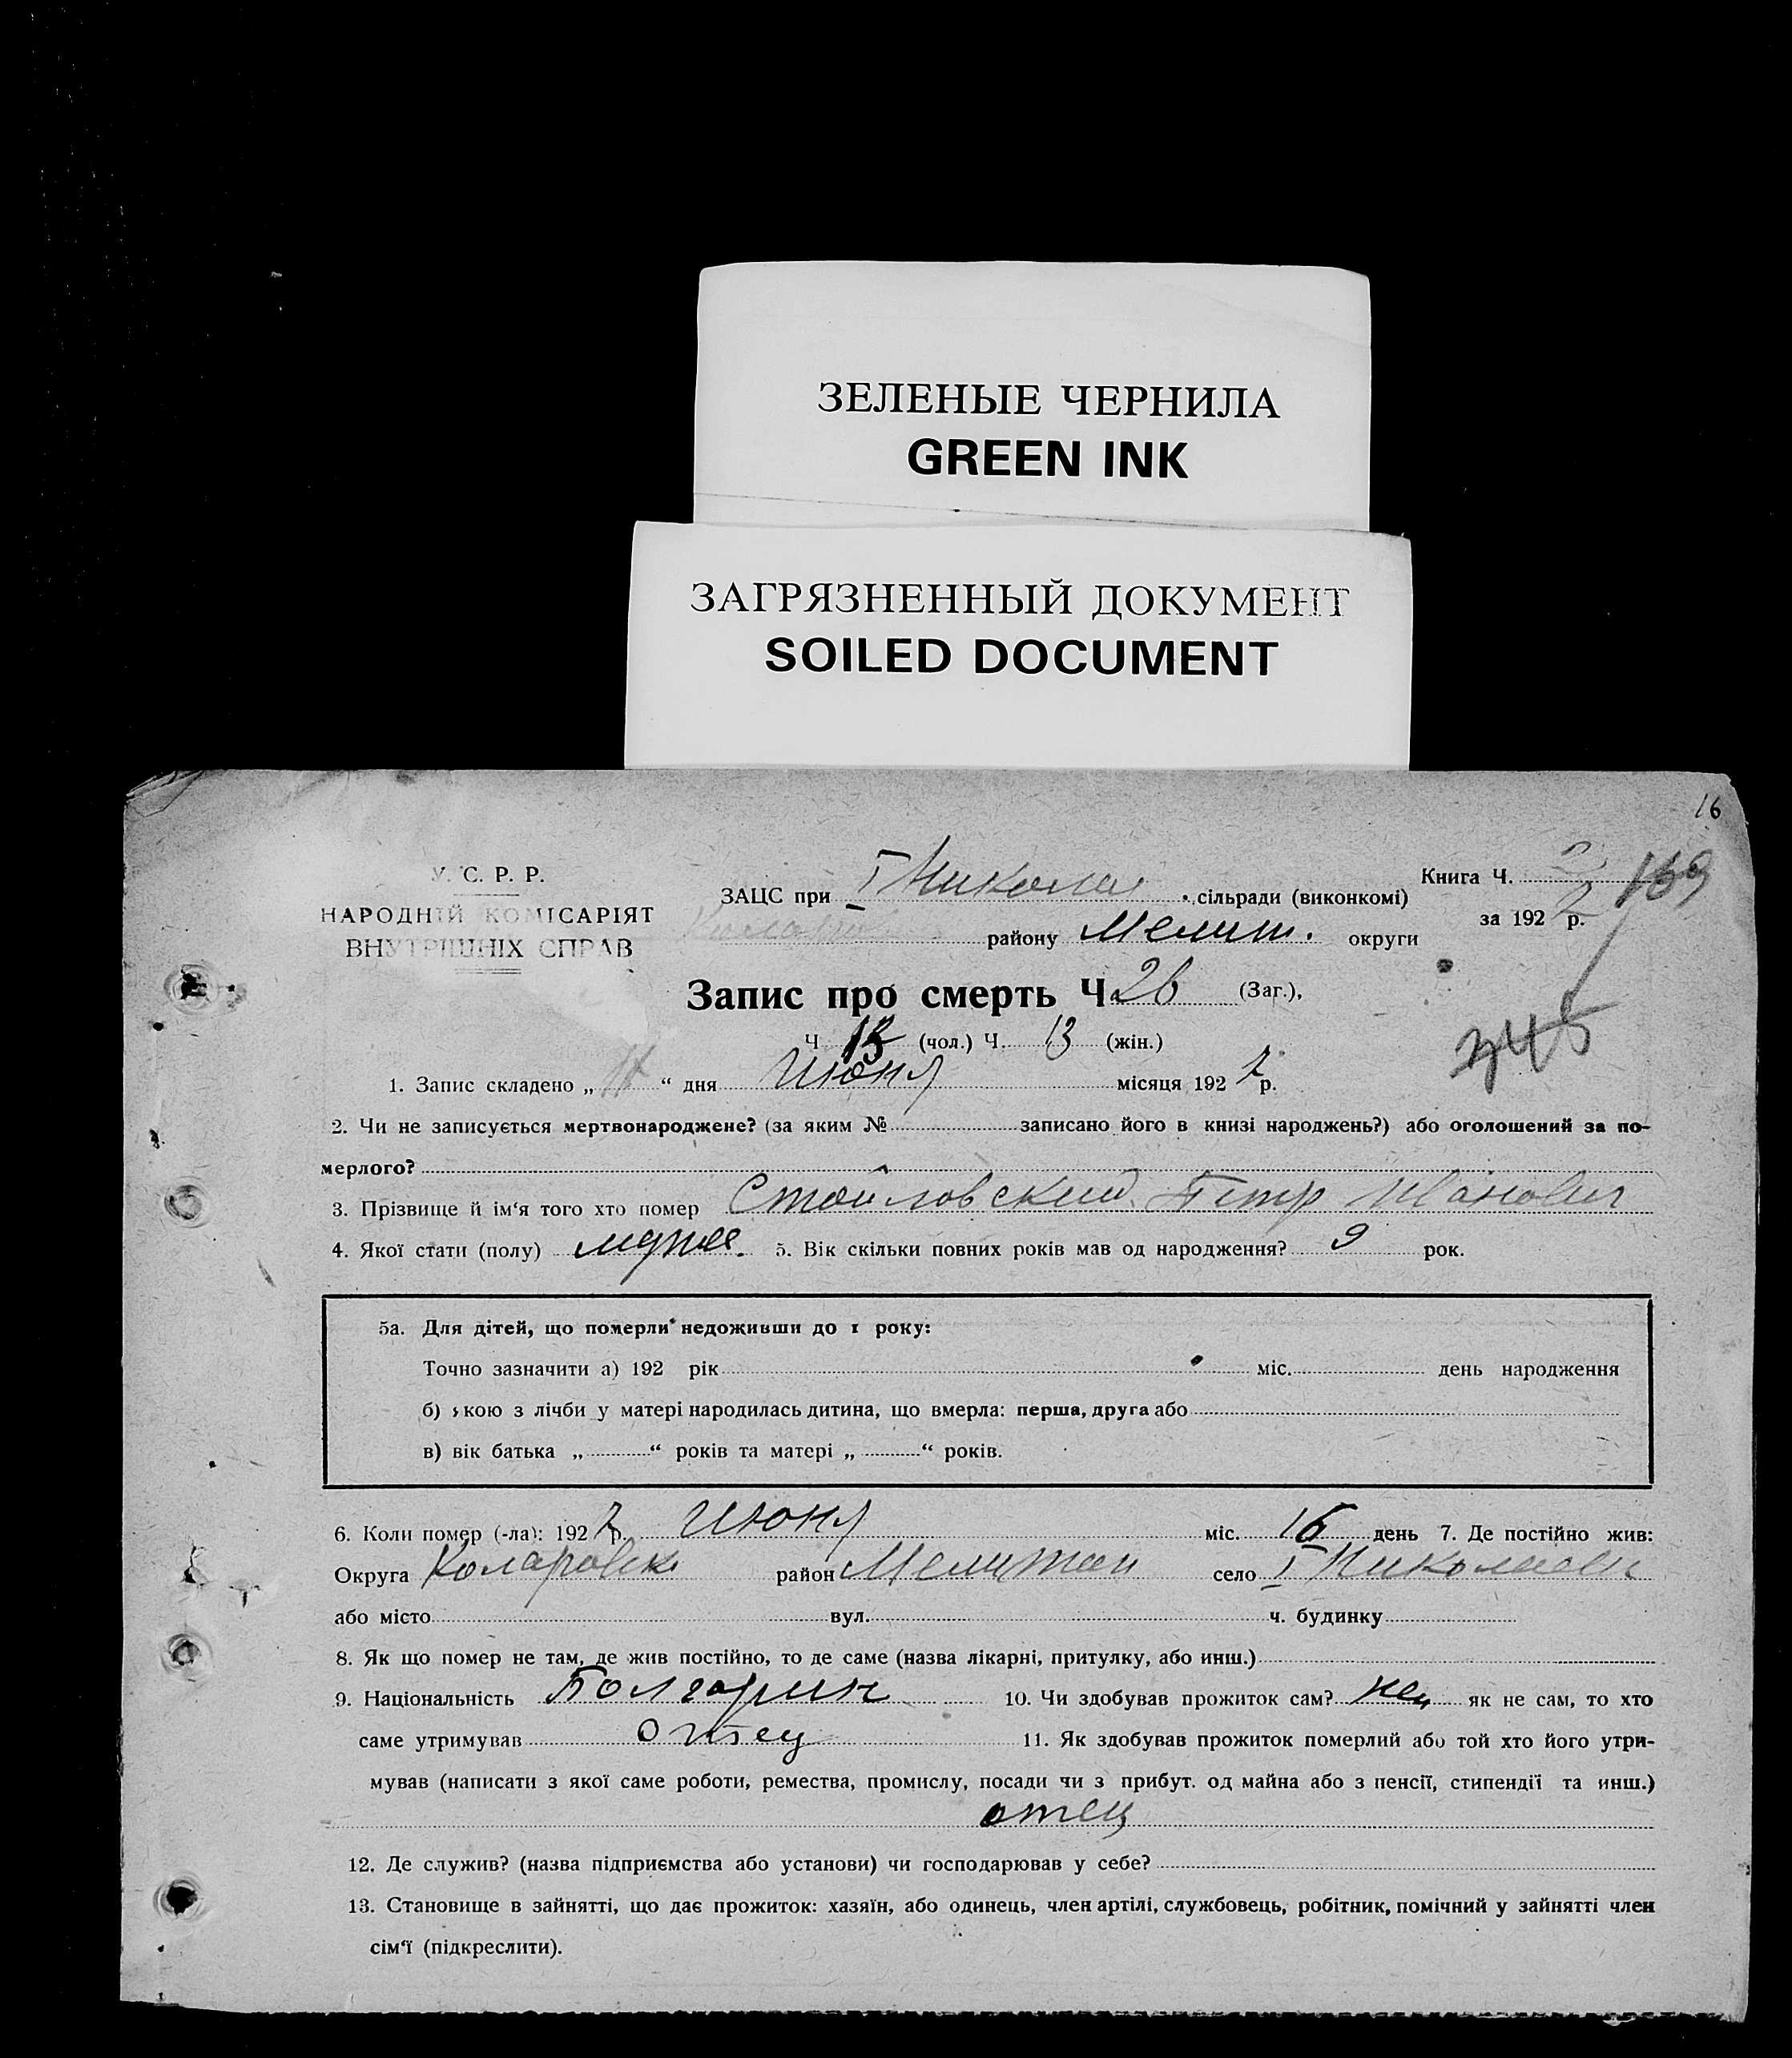 ЗЕЛЕНЫЕ ЧЕРНИЛА
GREEN INK
ЗАГРЯЗНЕННЫЙ ДОКУМЕНТ
SOILED DOCUMENT
16
У. С. Р. Р.
НАРОДНІЙ КОМІСАРІЯТ
ВНУТРІШНІХ СПРАВ
ЗАЦС при I Николаі сільради (виконкомі)
району Мелит. округи
Книга Ч. 169
за 1927 р.
Запис про смерть Ч 26 (Заг.),
345
Ч 13 (чол.) Ч. 13 (жін.)
1. Запис складено „ “ дня Июня місяця 1927 р.
2. Чи не записується мертвонароджене? (за яким № записано його в книзі народжень?) або оголошений за по-
мерлого?
3. Прізвище й ім‘я того хто помер Стойловский Петр Иванович
4. Якої стати (полу) мужск. 5. Вік скільки повних років мав од народження? 9 рок.
5а. Для дітей, що померли недоживши до 1 року:
Точно зазначити а) 192 рік міс. день народження
б) якою з лічби у матері народилась дитина, що вмерла: перша, друга або
в) вік батька „ “ років та матері „ “ років.
6. Коли помер (-ла): 1927 р. Июня міс. 16 день 7. Де постійно жив:
Округа Коларовск район Мелитоп село I Николаевк
або місто вул. ч. будинку
8. Як що помер не там, де жив постійно, то де саме (назва лікарні, притулку, або инш.)
9. Національність Болгарин 10. Чи здобував прожиток сам? як не сам, то хто
саме утримував отец 11. Як здобував прожиток померлий або той хто його утри-
мував (написати з якої саме роботи, ремества, промислу, посади чи з прибут. од майна або з пенсії, стипендії та инш.)
отец
12. Де служив? (назва підприємства або установи) чи господарював у себе?
13. Становище в зайнятті, що дає прожиток: хазяїн, або одинець, член артілі, службовець, робітник, помічний у зайнятті член
сім‘ї (підкреслити).